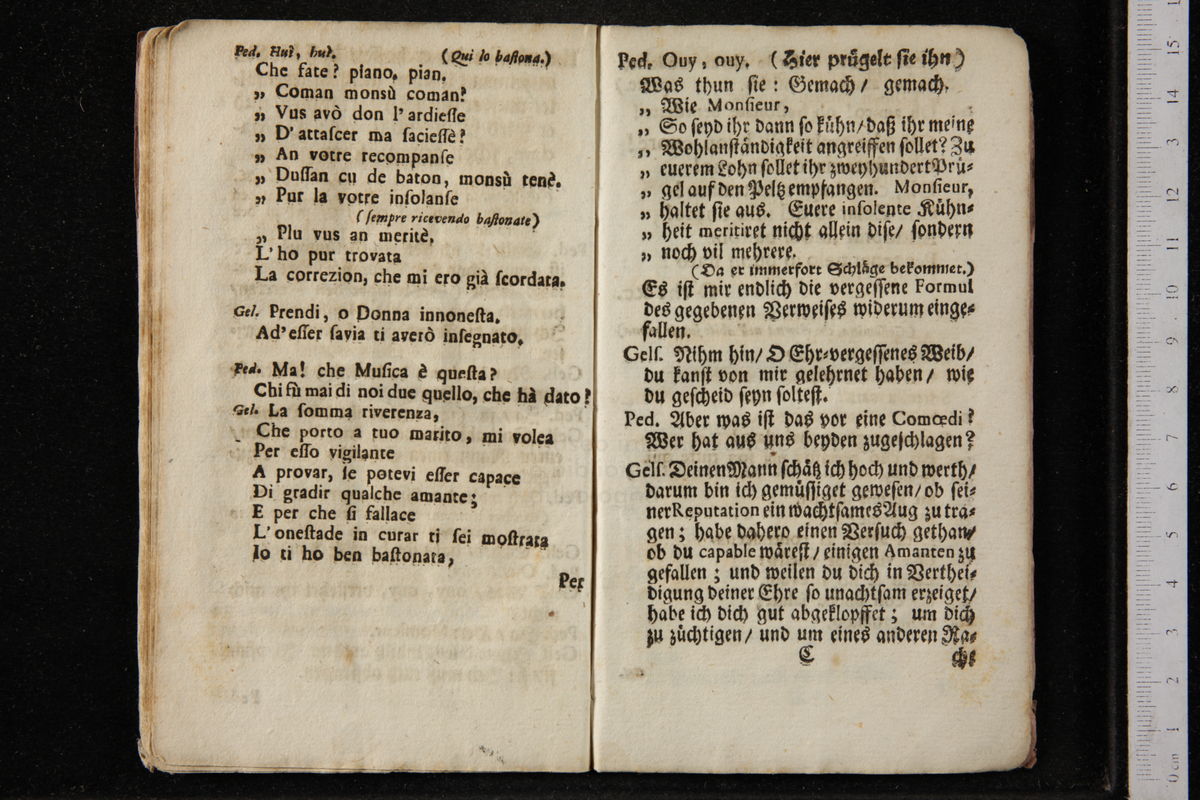 Ped. Huì, huì. (Qui lo baſtona.)
Che fate? piano, pian.
„ Coman monsù coman?
„ Vus avò don l'ardieſſe
„ D'attaſcer ma ſacieſſè?
„ An votre recompanſe
„ Duſſan cu de baton, monsù tenè.
„ Pur la votre inſolanſe
(ſempre ricevendo baſtonate)
„ Plu vus an meritè.
L'ho pur trovata
La correzion, che mi ero già ſcordata.
Gel. Prendi, o Donna innoneſta,
Ad'eſſer ſavia ti averò inſegnato.
Ped. Ma! che Muſica è queſta?
Chi fù mai di noi due quello, che hà dato?
Gel. La ſomma riverenza,
Che porto a tuo marito, mi volea
Per eſſo vigilante
A provar, ſe potevi eſſer capace
Di gradir qualche amante;
E per che ſi fallace
L'oneſtade in curar ti ſei moſtrata
Io ti ho ben baſtonata,
Per
Ped. Ouy, ouy. (Hier prügelt ſie ihn)
Was thun ſie: Gemach/ gemach.
„ Wie Monſieur,
„ So ſeyd ihr dann ſo kühn/daß ihr meine
„ Wohlanſtändigkeit angreiffen ſollet? Zu
„ euerem Lohn ſollet ihr zweyhundert Prü-
„ gel auf den Peltz empfangen. Monſieur,
„ haltet ſie aus. Euere inſolente Kühn-
„ heit meritiret nicht allein diſe/ ſondern
„ noch vil mehrere.
(Da er immerfort Schläge bekommet.)
Es iſt mir endlich die vergeſſene Formul
des gegebenen Verweiſes widerum einge-
fallen.
Gelſ. Nihm hin/ O Ehr-vergeſſenes Weib/
du kanſt von mir gelehrnet haben/ wie
du geſcheid ſeyn ſolteſt.
Ped. Aber was iſt das vor eine Comœdi?
Wer hat aus uns beyden zugeſchlagen?
Gelſ. Deinen Mann ſchätz ich hoch und werth/
darum bin ich gemüſſiget geweſen/ ob ſei-
ner Reputation ein wachtſames Aug zu tra-
gen; habe dahero einen Verſuch gethan/
ob du capable wäreſt/ einigen Amanten zu
gefallen; und weilen du dich in Verthei-
digung deiner Ehre ſo unachtſam erzeiget/
habe ich dich gut abgeklopffet; um dich
zu züchtigen/ und um eines anderen Ra-
C che